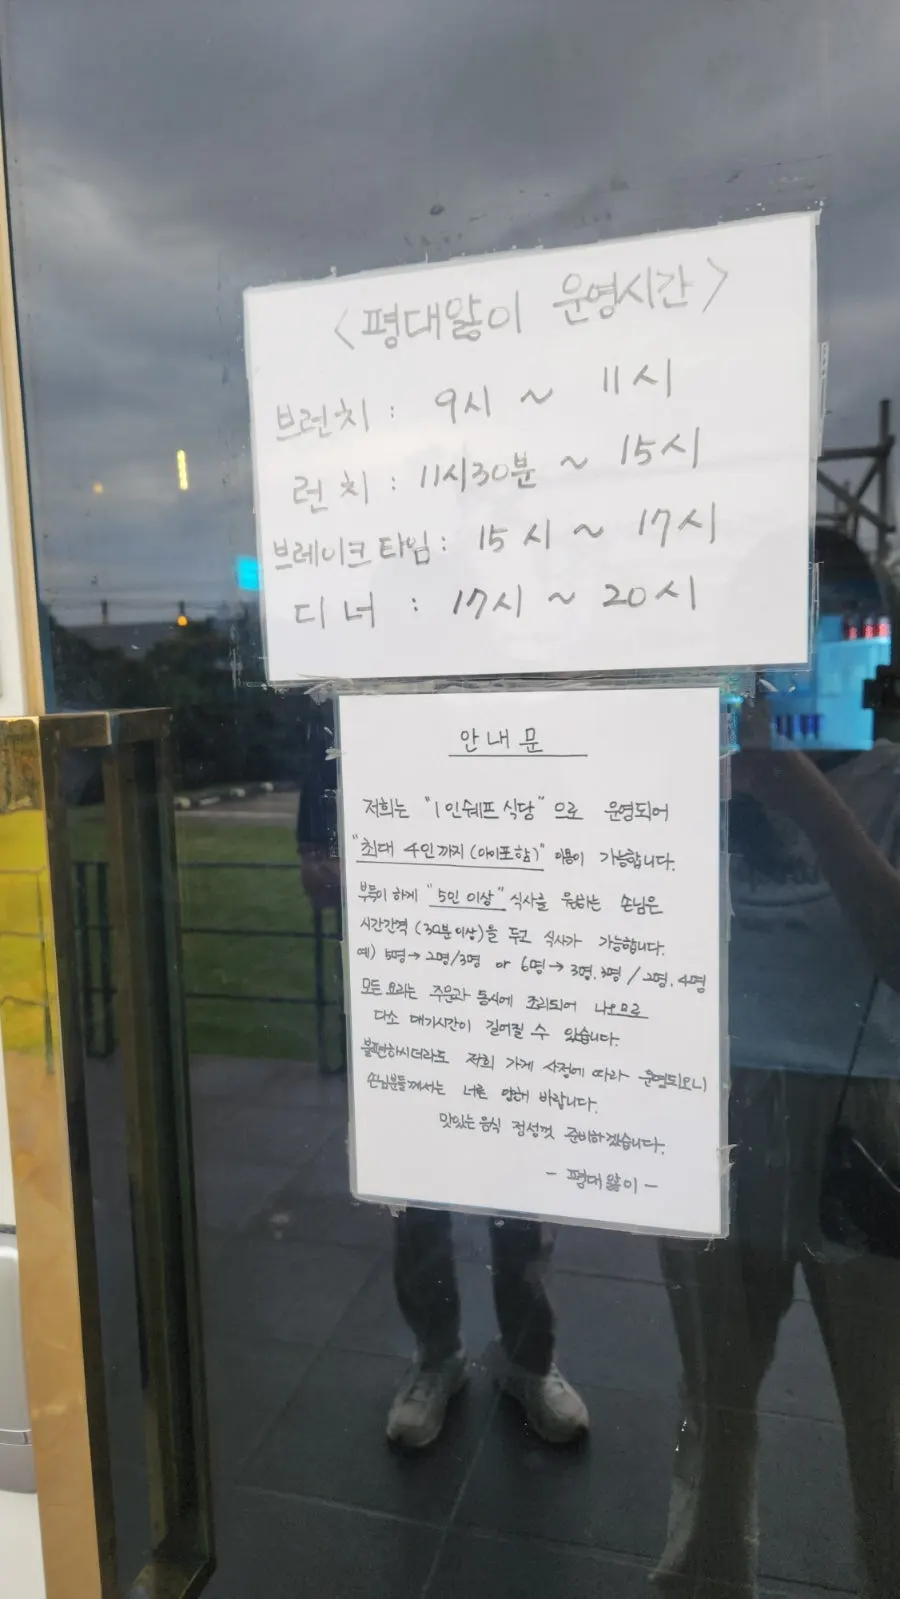 <평대앓이 운영시간>
브런치 : 9시 ~ 11시
런치 : 11시30분 ~ 15시
브레이크타임 : 15시 ~ 17시
디너 : 17시 ~ 20시
안내문
저희는 "1인쉐프 식당" 으로 운영되어
"최대 4인까지 (아이포함)" 이용이 가능합니다.
부득이 하게 "5인 이상" 식사를 원하는 손님은
시간간격 (30분이상)을 두고 식사가 가능합니다.
예) 5명→2명/3명 or 6명→3명.3명 / 2명.4명
모든 요리는 주문과 동시에 조리되어 나오므로
다소 대기시간이 길어질 수 있습니다.
불편하시더라도 저희 가게 사정에 따라 운영되오니
손님분들께서는 너른 양해 바랍니다.
맛있는 음식 정성껏 준비하겠습니다.
- 평대앓이 -